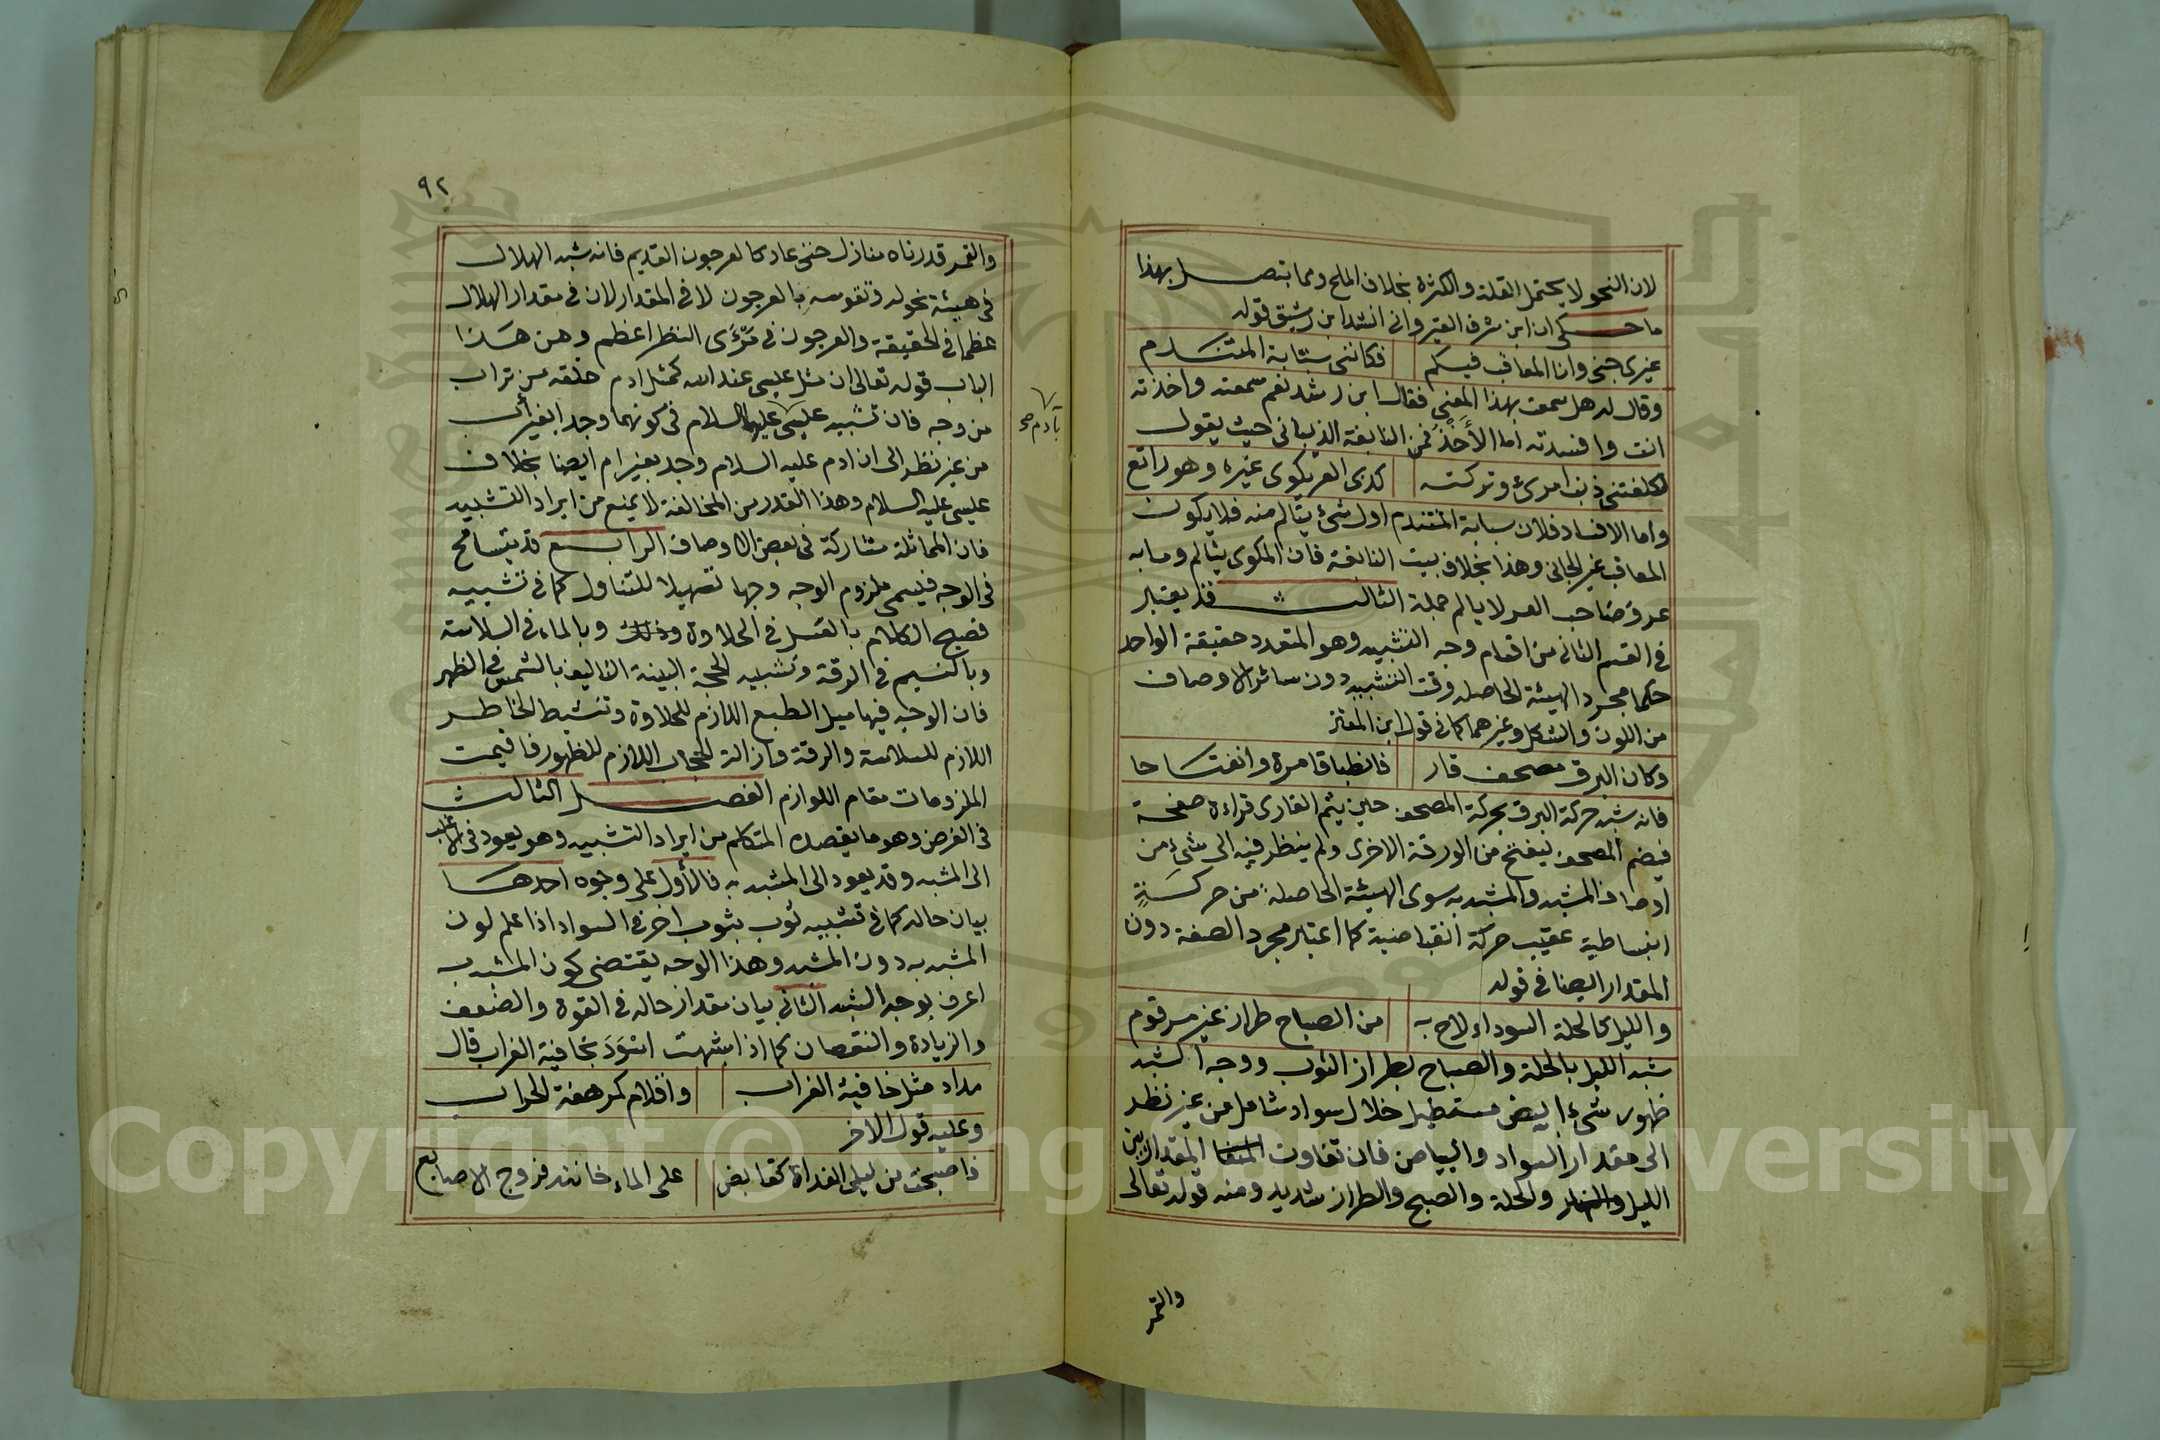 لان النحو لا يحتمل القلة والكثرة بخلاف الملح ومما يتصل بهذا
ما حكى ان ابن شرف القيرواني انشد ابن رشيق قوله
غيرى جنى وانا المعاقب فيكم فكاننى سبابة المتندم
وقال له هل سمعت بهذا المعنى فقال ابن رشد نعم سمعته واخذته
انت وافسدته اما الأَخْذُ فمن النابغة الذبيانى حيث يقول
لكلفتنى ذنب امرئ وتركته كذى العر يكوى غيره وهو راتع
واما الافساد فلان سبابة المتندم اول شئ يتالم منه فلا يكون
المعاقب غير الجانى وهذا بخلاف بيت النابغة فان المكوى يتالم وما به
عر وصاحب العر لا يالم جملة الثالث قد يعتبر
فى القسم الثانى من اقسام وجه التشبيه وهو المتعدد حقيقة الواحد
حكما مجرد الهيئة الحاصله وقت التشبيه دون سائر الاوصاف
من اللون والشكل وغيرهما كما فى قول ابن المعتز
وكان البرق مصحف قار فانطباقا مرة وانفتاحا
فانه شبه حركة البرق بحركة المصحف حين يتم القارى قراءة صفحة
فيضم المصحف ليفتح من الورقة الاخرى ولم ينظر فيه الى شئ من
اوصاف المشبه والمشبه به سوى الهيئة الحاصلة من حركةٍ
انبساطية عقيب حركة انقباضية كما اعتبار مجرد الصفة دون
المقدار ايضا فى قوله
والليل كالحلة السوداء لاح به من الصباح طراز غير مرقوم
شبه الليل بالحلة والصباح بطراز الثوب ووجه الشبه
ظهور شئ ابيض مستطيل خلال سواد شامل من غير نظر
الى مقدار السواد والبياض فان تفاوت المقدار بين
الليل والحلة والصبح والطراز شديد ومنه قوله تعالى
والقمر
٩٢
والقمر قدرناه منازل حتى عاد كالعرجون القديم فانه شبه الهلال
فى هيئة نحوله وتقوسه بالعرجون لا فى المقدار لان فى مقدار الهلال
عظما فى الحقيقة والعرجون فى مَرْءَى النظر اعظم ومن هذا
الباب قوله تعالى ان مثل عيسى عند الله كمثل ادم خلقه من تراب
من وجه فان تشبيه عيسى عليهما السلام فى كونهما وجد ابغير أب
بآدم صح
من غير نظر الى ان ادم عليه السلام وجد بغير ام ايضا بخلاف
عيسى عليه السلام وهذا القدر من المخالفة لا يمنع من ايراد التشبيه
فان المماثلة مشاركة فى بعض الاوصاف الرابع قد يتسامح
فى الوجه فيسمى ملزوم الوجه وجها تسهيلا للتناول كما فى تشبيه
فصيح الكلام بالعسل فى الحلاوة وبالماء فى السلاسة
وبالنسيم فى الرقة وتشبيه الحجة البينة التاليف بالشمس فى الظهور
فان الوجه فيها ميل الطبع اللازم للحلاوة وتنشيط الخاطر
اللازم للسلاسة والرقة وازالة الحجاب اللازم للظهور فاقيمت
الملزومات مقام اللوازم الفصل الثالث
فى الغرض وهو ما يقصده المتكلم من ايراد التشبيه وهو يعود فى الاغلب
الى المشبه وقد يعود الى المشبه به فالأول على وجوه احدها
بيان حاله كما فى تشبيه ثوب بثوب اخر فى السواد اذا علم لون
المشبه به دون المشبه وهذا الوجه يقتضى كون المشبه به
اعرف بوجه الشبه الثانى بيان مقدار حاله فى القوة والضعف
والزيادة والنقصان كما اذا شبهت اسْوَدَ بخافية الغراب قال
مداد مثل خافية الغراب واقلام كمرهفة الحراب
وعليه قول الاخر
فاصبحت من ليلى الغداة كقابض على الماء خانته فروج الاصابع